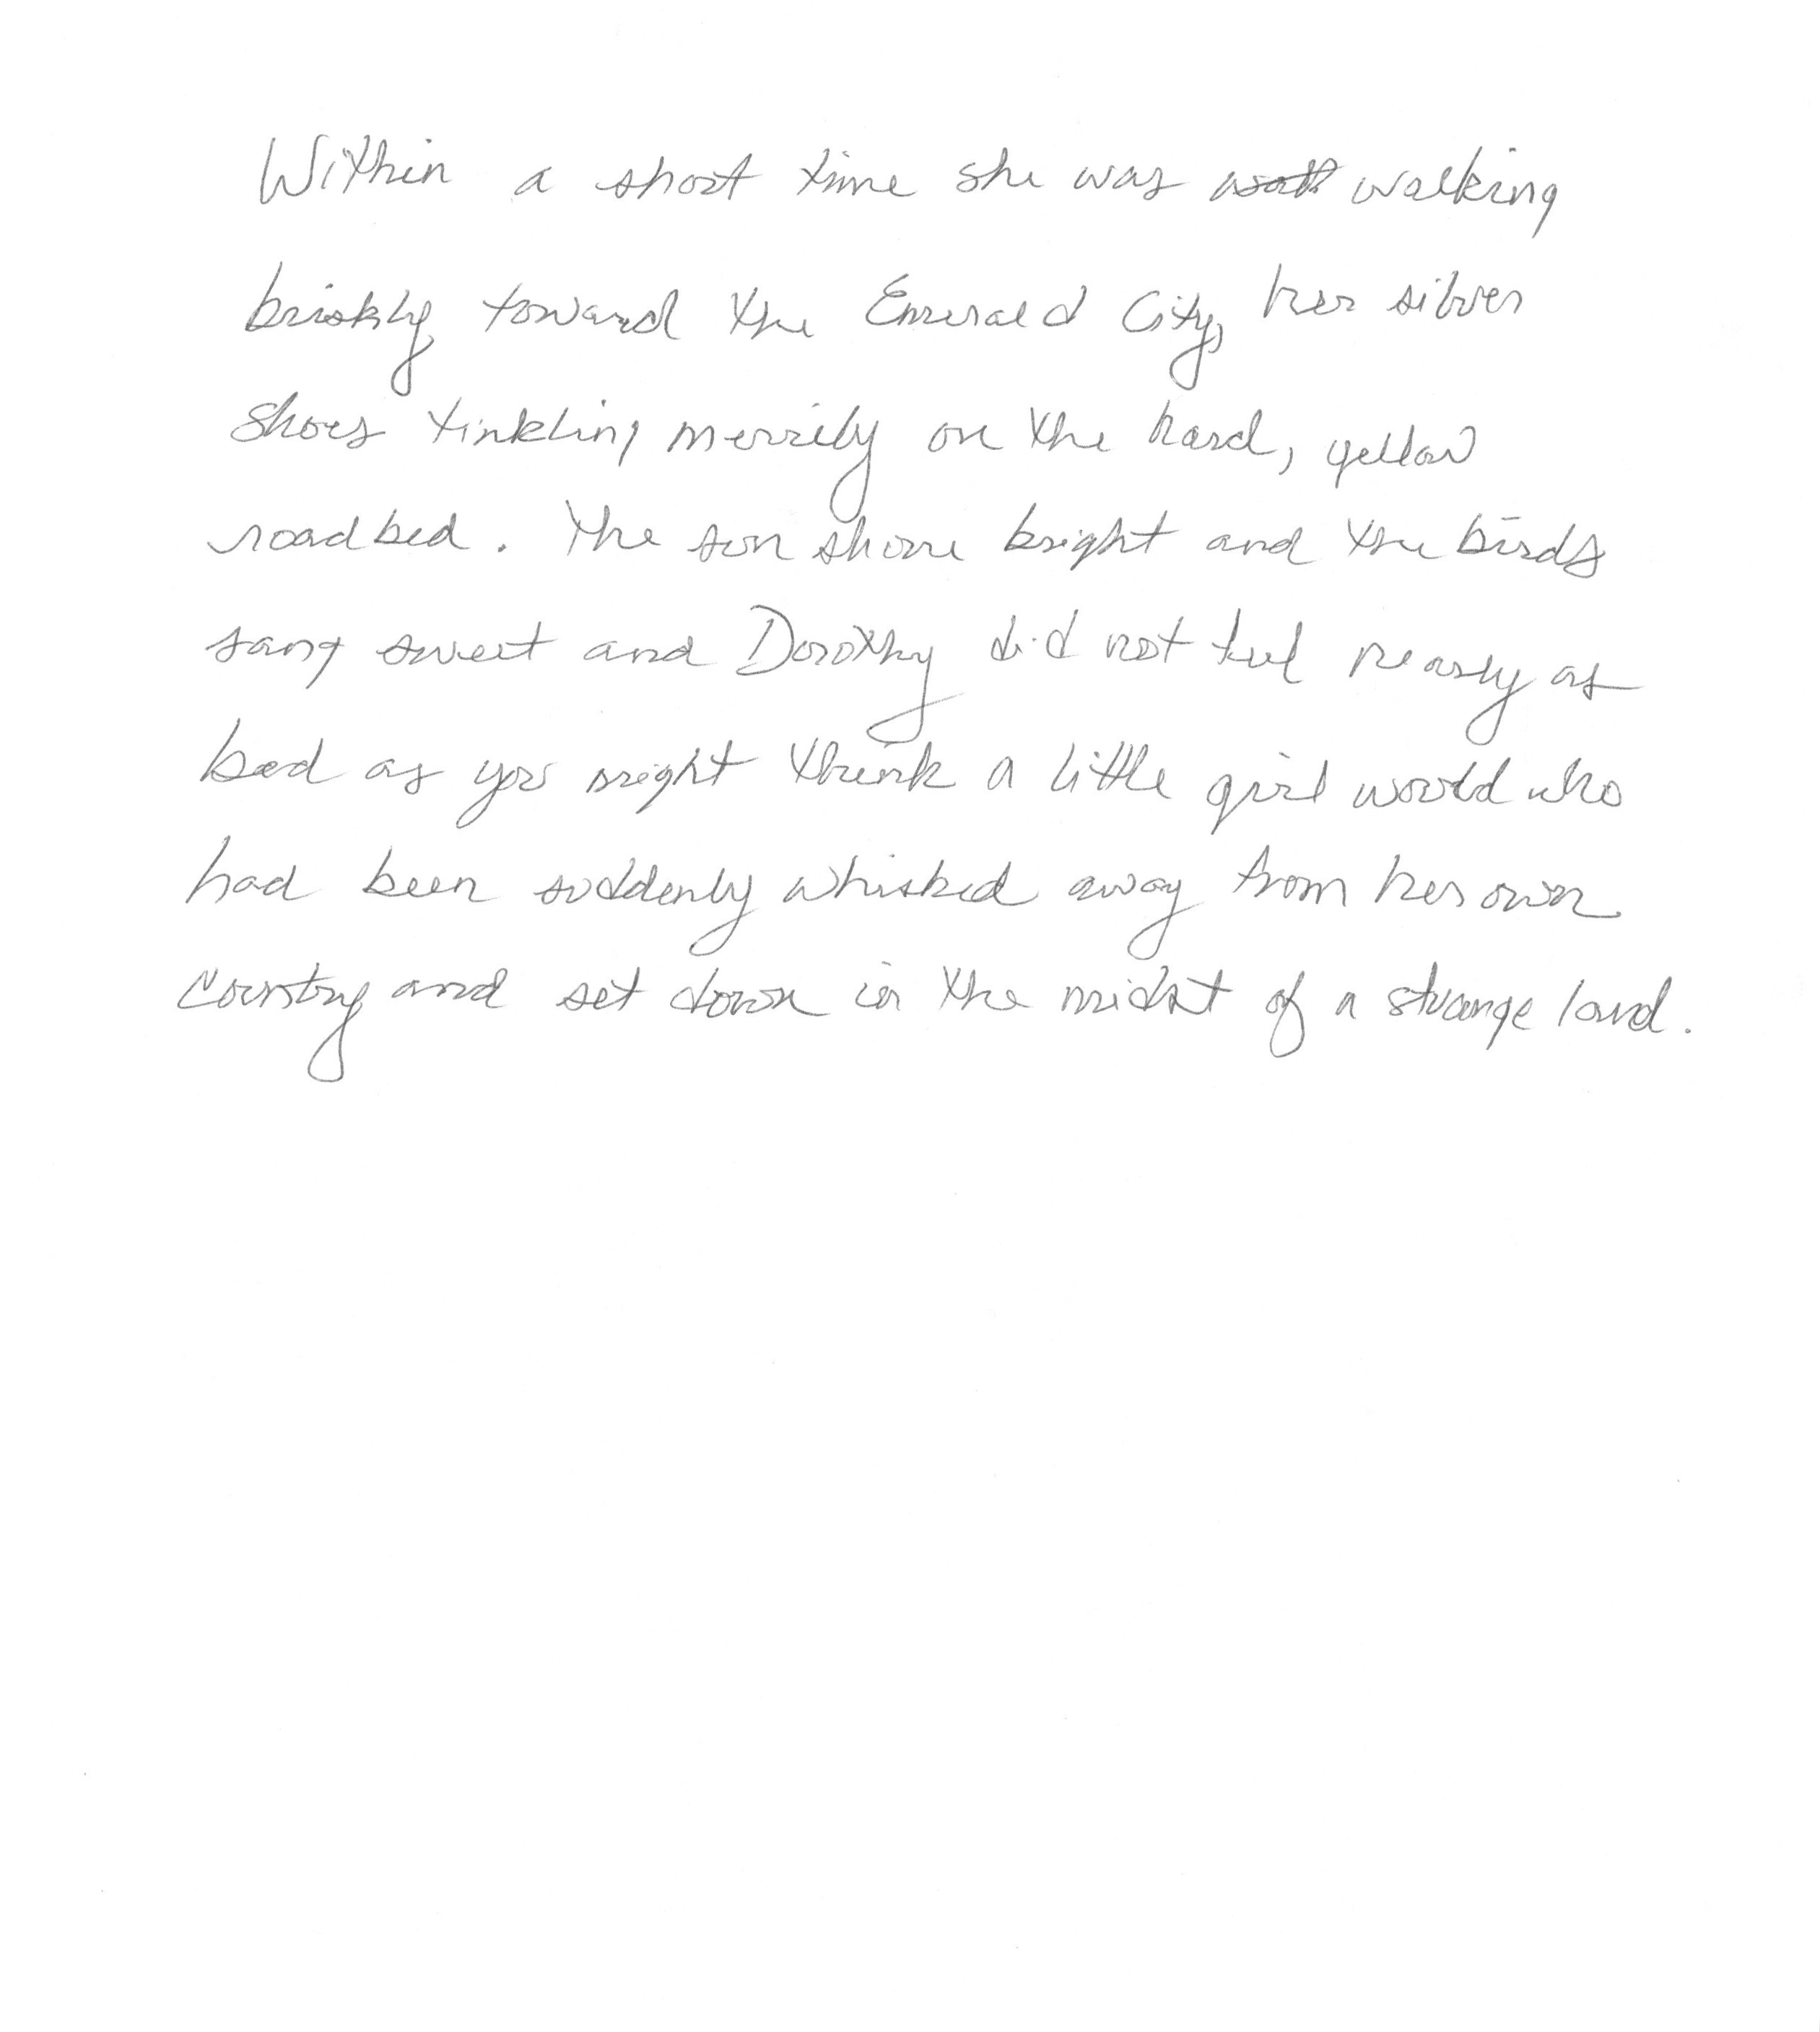 Within a short time she was walking
briskly toward the Emerald City, her silver
shoes tinkling merrily on the hard, yellow
roadbed. The sun shone bright and the birds
sang sweet and Dorothy did not feel nearly as
bad as you might think a little girl would who
had been suddenly whisked away from her own
country and set down in the midst of a strange land.